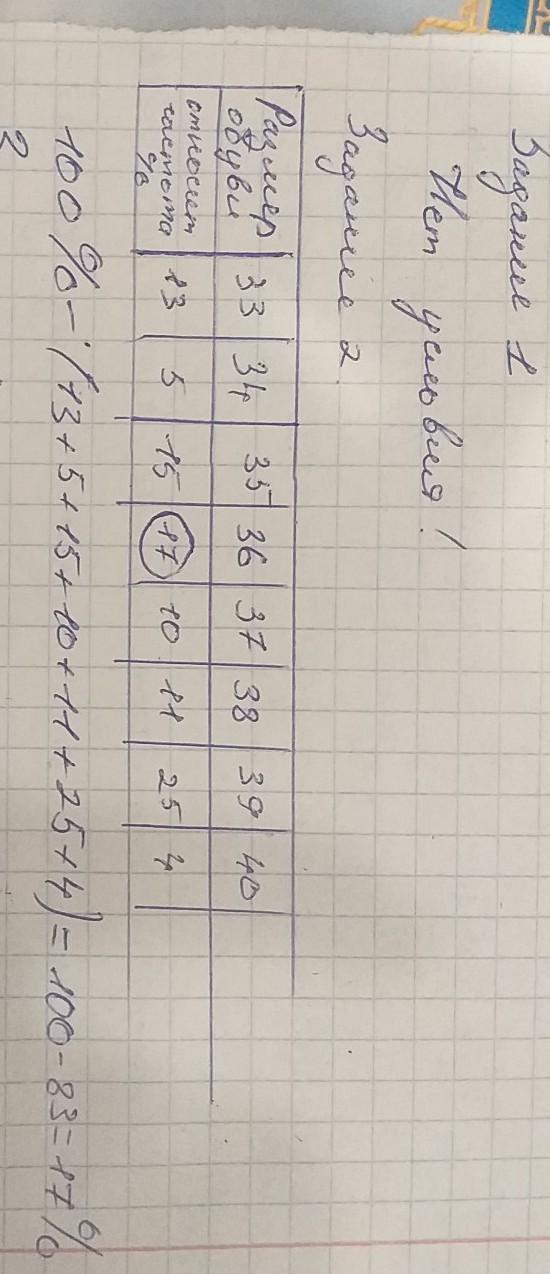 Задание 1
Нет условия!
Задание 2.
Размер обуви 33 34 35 36 37 38 39 40
относит частота % 13 5 15 17 10 11 25 4
100% - (13+5+15+10+11+25+4) = 100 - 83 = 17%